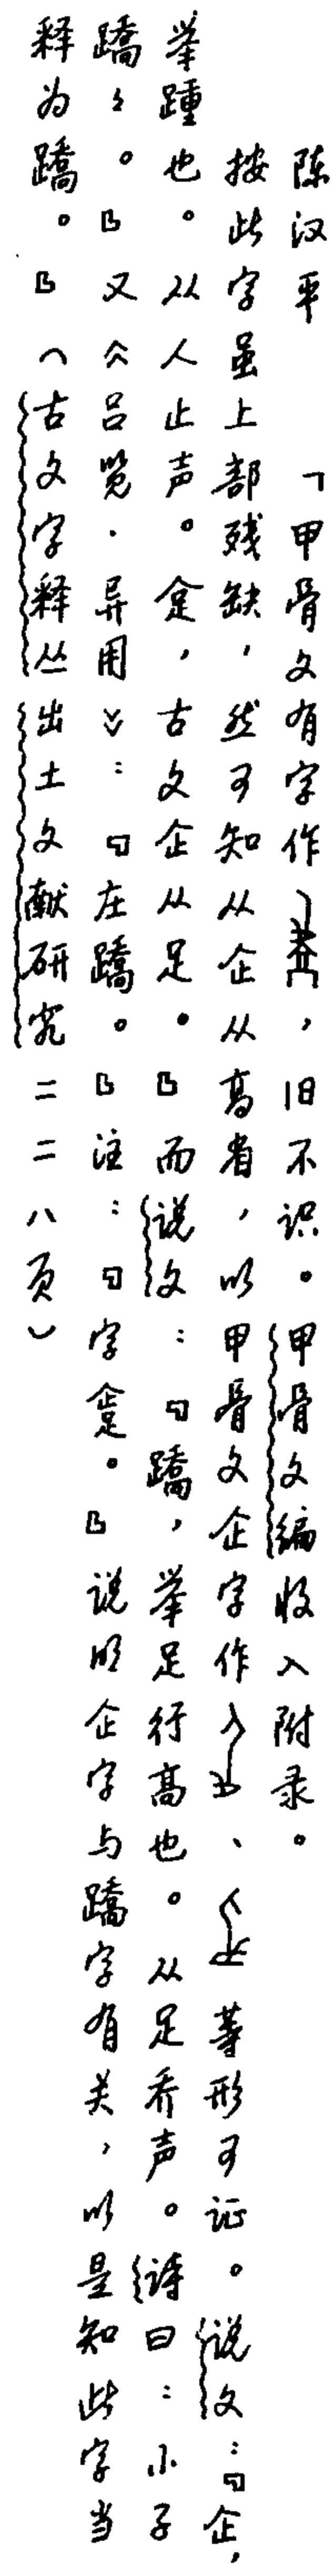 陈汉平 「甲骨文有字作，旧不识。甲骨文编收入附录。
按此字虽上部残缺，然可知从企从高省，以甲骨文企字作、等形可证。说文：『企，
举踵也。从人止声。𧿇，古文企从足。』而说文：『蹻，举足行高也。从足乔声。诗曰：小子
蹻〻。』又《吕览·异用》：『在蹻。』注：『字𧿇。』说明企字与蹻字有关，以是知此字当
释为蹻。』（古文字释丛出土文献研究二二八页）